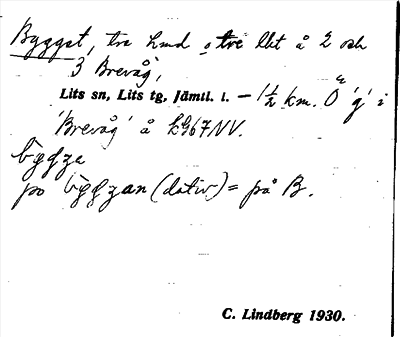 Bygget, tre hmd o tre lht å 2 och
3 Brevåg,
Lits sn, Lits tg, Jämtl. l. – 1½ km. Ö 'g' i
'Brevåg' å kG67NV.
bỳgza
po bỳgzan (dativ) = på B.
C. Lindberg 1930.